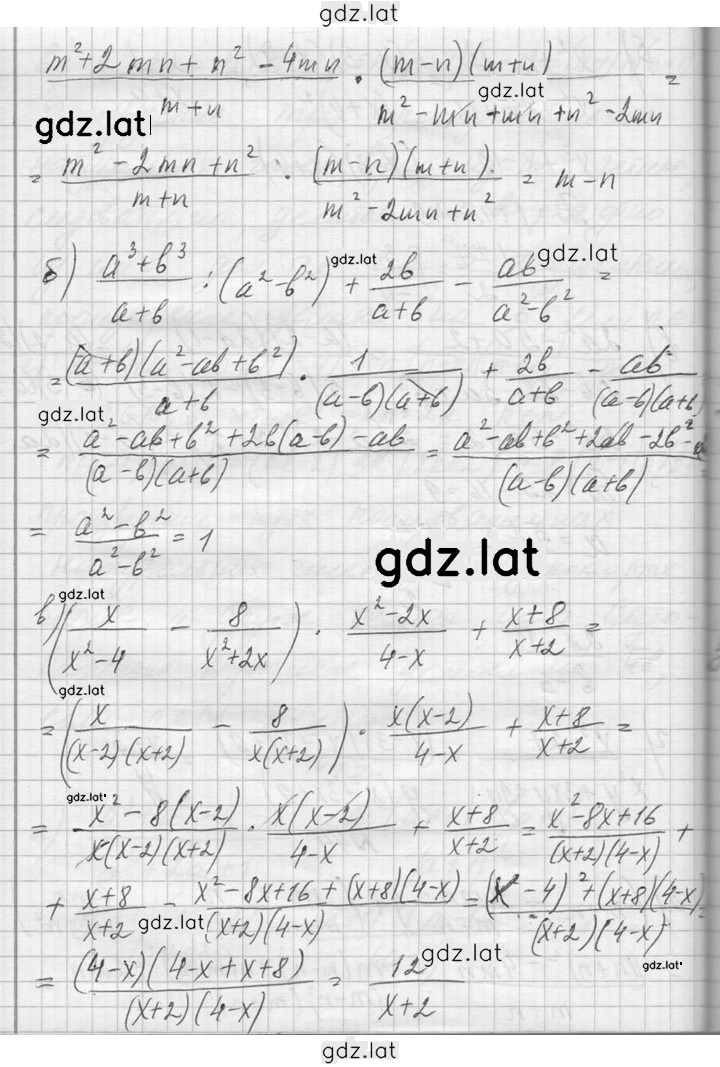 gdz.lat
(m²+2mn+n²-4mn)/(m+n) · ((m-n)(m+n))/(m²-mn+mn+n²-2mn) =
gdz.lat
gdz.lat
= (m²-2mn+n²)/(m+n) · ((m-n)(m+n))/(m²-2mn+n²) = m-n
б) (a³+b³)/(a+b) : (a²-b²) + 2b/(a+b) - ab/(a²-b²) =
gdz.lat
gdz.lat
= ((a+b)(a²-ab+b²))/(a+b) · 1/((a-b)(a+b)) + 2b/(a+b) - ab/((a-b)(a+b
gdz.lat
= (a²-ab+b²+2b(a-b)-ab)/((a-b)(a+b)) = (a²-ab+b²+2ab-2b²-)/((a-b)(a+b))
= (a²-b²)/(a²-b²) = 1
gdz.lat
gdz.lat
в) (x/(x²-4) - 8/(x²+2x)) · (x²-2x)/(4-x) + (x+8)/(x+2) =
gdz.lat
= (x/((x-2)(x+2)) - 8/(x(x+2))) · (x(x-2))/(4-x) + (x+8)/(x+2) =
gdz.lat
= (x²-8(x-2))/(x(x-2)(x+2)) · (x(x-2))/(4-x) + (x+8)/(x+2) = (x²-8x+16)/((x+2)(4-x)) +
+ (x+8)/(x+2) = (x²-8x+16+(x+8)(4-x))/((x+2)(4-x)) = ((x-4)²+(x+8)(4-x))/((x+2)(4-x)) =
gdz.lat
gdz.lat
gdz.lat
= ((4-x)(4-x+x+8))/((x+2)(4-x)) = 12/(x+2)
gdz.lat